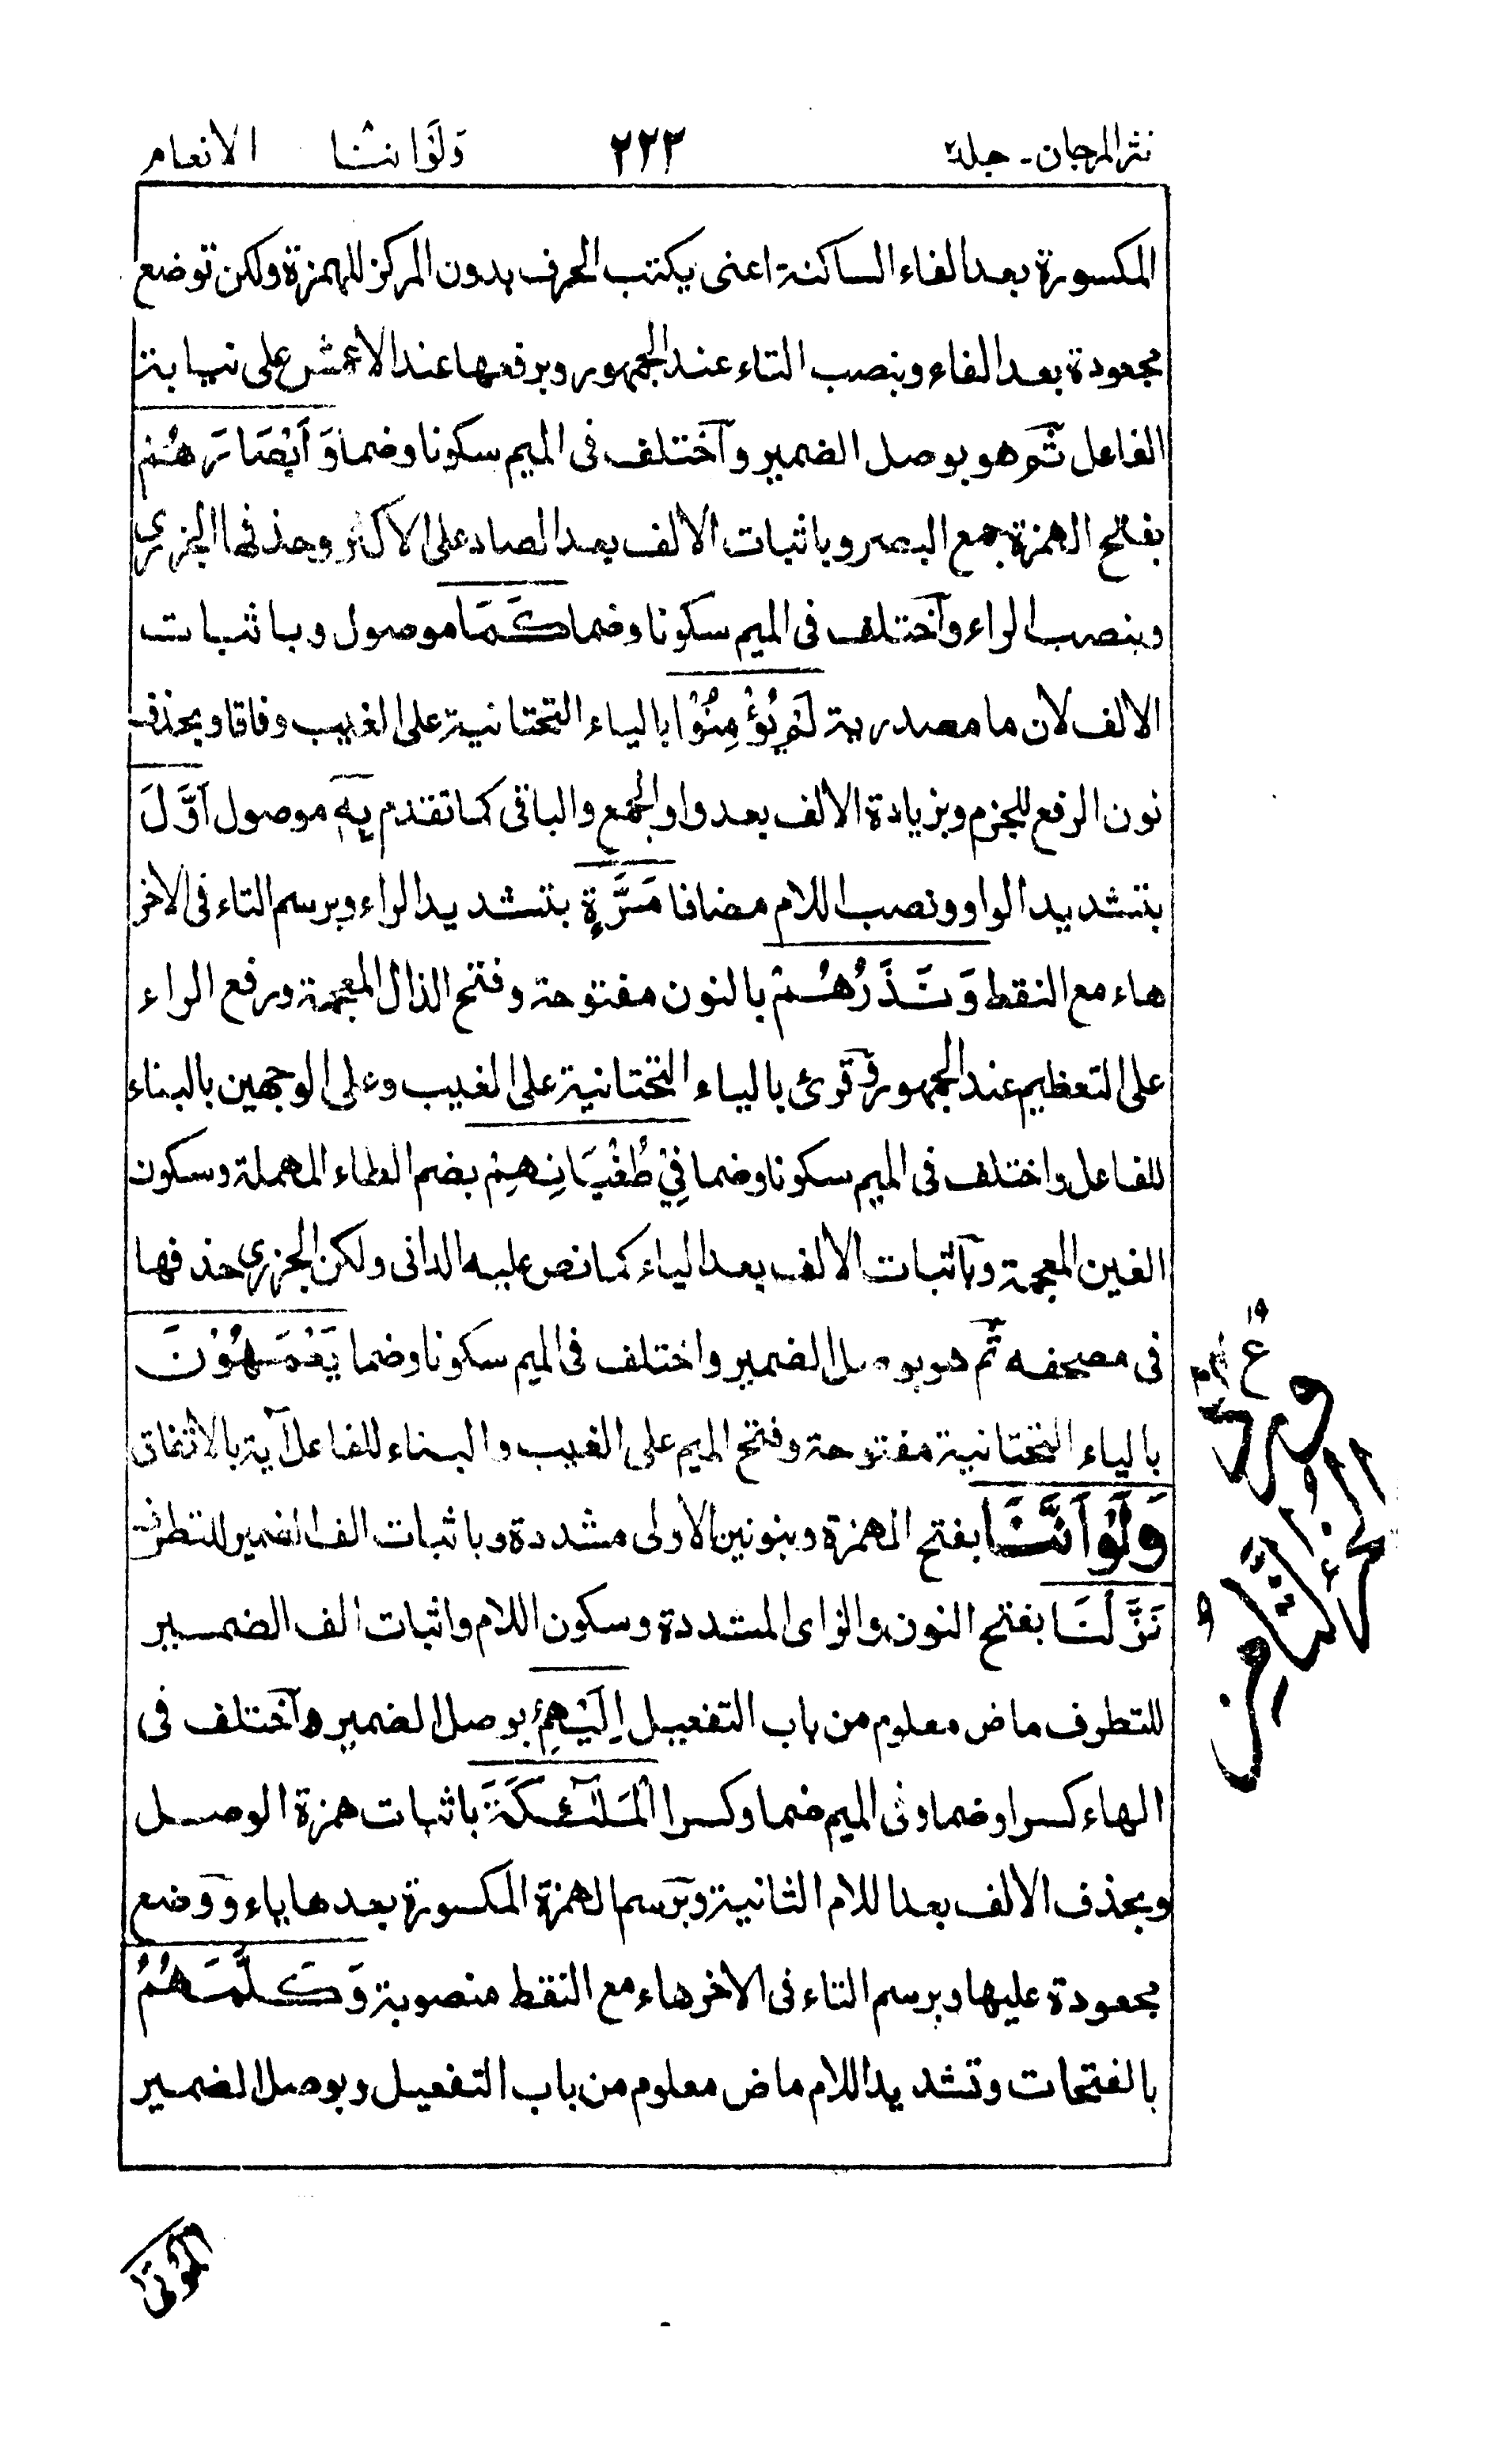 نثر المرجان - جلد ٢ ٢٢٣ وَلَوْ اننا الانعام
المكسورة بعد الفاء الساكنة اعنى يكتب الحرف بدون المركز للهمزة ولكن توضع
مجعودة بعد الفاء وبنصب التاء عند الجمهور وبرفعها عند الاعمش على نيابة
الفاعل ثم هو بوصل الضمير واختلف فى الميم سكونا وضما وَ اَبْصَارَهُمْ
بفتح الهمزة جمع البصر وباثبات الالف بعد الصاد على الاكثر وحذفها الجزرى
وبنصب الراء واختلف فى الميم سكونا وضما كَمَا موصول وباثبات
الالف لان ما مصدرية لَمْ يُؤْمِنُوْا بالياء التحتانية على الغيب وفاقا وبحذف
نون الرفع للجزم وبزيادة الالف بعد واو الجمع والباقى كما تقدم بِهٖ موصول اَوَّلَ
بتشديد الواو ونصب اللام مضافا مَرَّةٍ بتشديد الراء وبرسم التاء فى الاخر
هاء مع النقط وَ نَذَرُهُمْ بالنون مفتوحة وفتح الذال المعجمة ورفع الراء
على التعظيم عند الجمهور وقرئ بالياء التحتانية على الغيب وعلى الوجهين بالبناء
للفاعل واختلف فى الميم سكونا وضما فِيْ طُغْيَانِهِمْ بضم الطاء المهملة وسكون
الغين المعجمة وباثبات الالف بعد الياء كما نص عليه الدانى ولكن الجزرى حذفها
فى مصحفه ثم هو بوصل الضمير واختلف فى الميم سكونا وضما يَعْمَهُوْنَ
بالياء التحتانية مفتوحة وفتح الميم على الغيب والبناء للفاعل آية بالاتفاق
وَلَوْ اَنَّنَا بفتح الهمزة وبنونين الاولى مشددة وباثبات الف الضمير للتطرف
نَزَّلْنَا بفتح النون والزاى المشددة وسكون اللام واثبات الف الضمير
للتطرف ماض معلوم من باب التفعيل اِلَيْهِمُ بوصل الضمير واختلف فى
الهاء كسرا وضما وفى الميم ضما وكسرا الْمَلٰٓئِكَةَ باثبات همزة الوصل
وبحذف الالف بعد اللام الثانية وبرسم الهمزة المكسورة بعدها ياء ووضع
مجعودة عليها وبرسم التاء فى الاخر هاء مع النقط منصوبة وَ كَلَّمَهُمُ
بالفتحات وتشديد اللام ماض معلوم من باب التفعيل وبوصل الضمير
١٩
ع
الجزء الثامن
الموتى